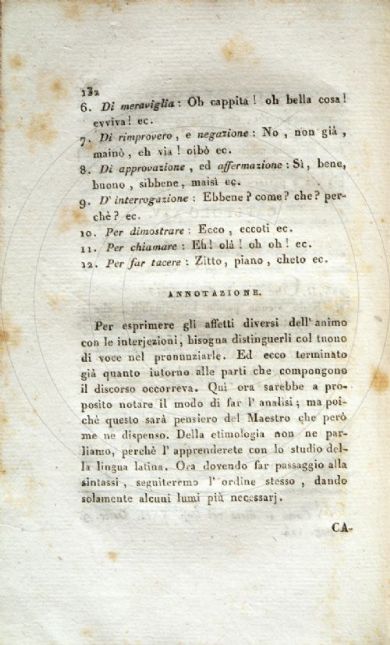 132
6. Di meraviglia: Oh cappita! oh bella cosa!
evviva! ec.
7. Di rimprovero, e negazione: No, non già,
mainò, eh via! oibò ec.
8. Di approvazione, ed affermazione: Sì, bene,
buono, sibbene, maisì ec.
9. D'interrogazione: Ebbene? come? che? per-
chè? ec.
10. Per dimostrare: Ecco, eccoti ec.
11. Per chiamare: Eh! olà! oh oh! ec.
12. Per far tacere: Zitto, piano, cheto ec.
ANNOTAZIONE.
Per esprimere gli affetti diversi dell'animo
con le interjezioni, bisogna distinguerli col tuono
di voce nel pronunziarle. Ed ecco terminato
già quanto intorno alle parti che compongono
il discorso occorreva. Qui ora sarebbe a pro-
posito notare il modo di far l'analisi; ma poi-
chè questo sarà pensiero del Maestro che però
me ne dispenso. Della etimologia non ne par-
liamo, perchè l'apprenderete con lo studio del-
la lingua latina. Ora dovendo far passaggio alla
sintassi, seguiteremo l'ordine stesso, dando
solamente alcuni lumi più necessarj.
CA-